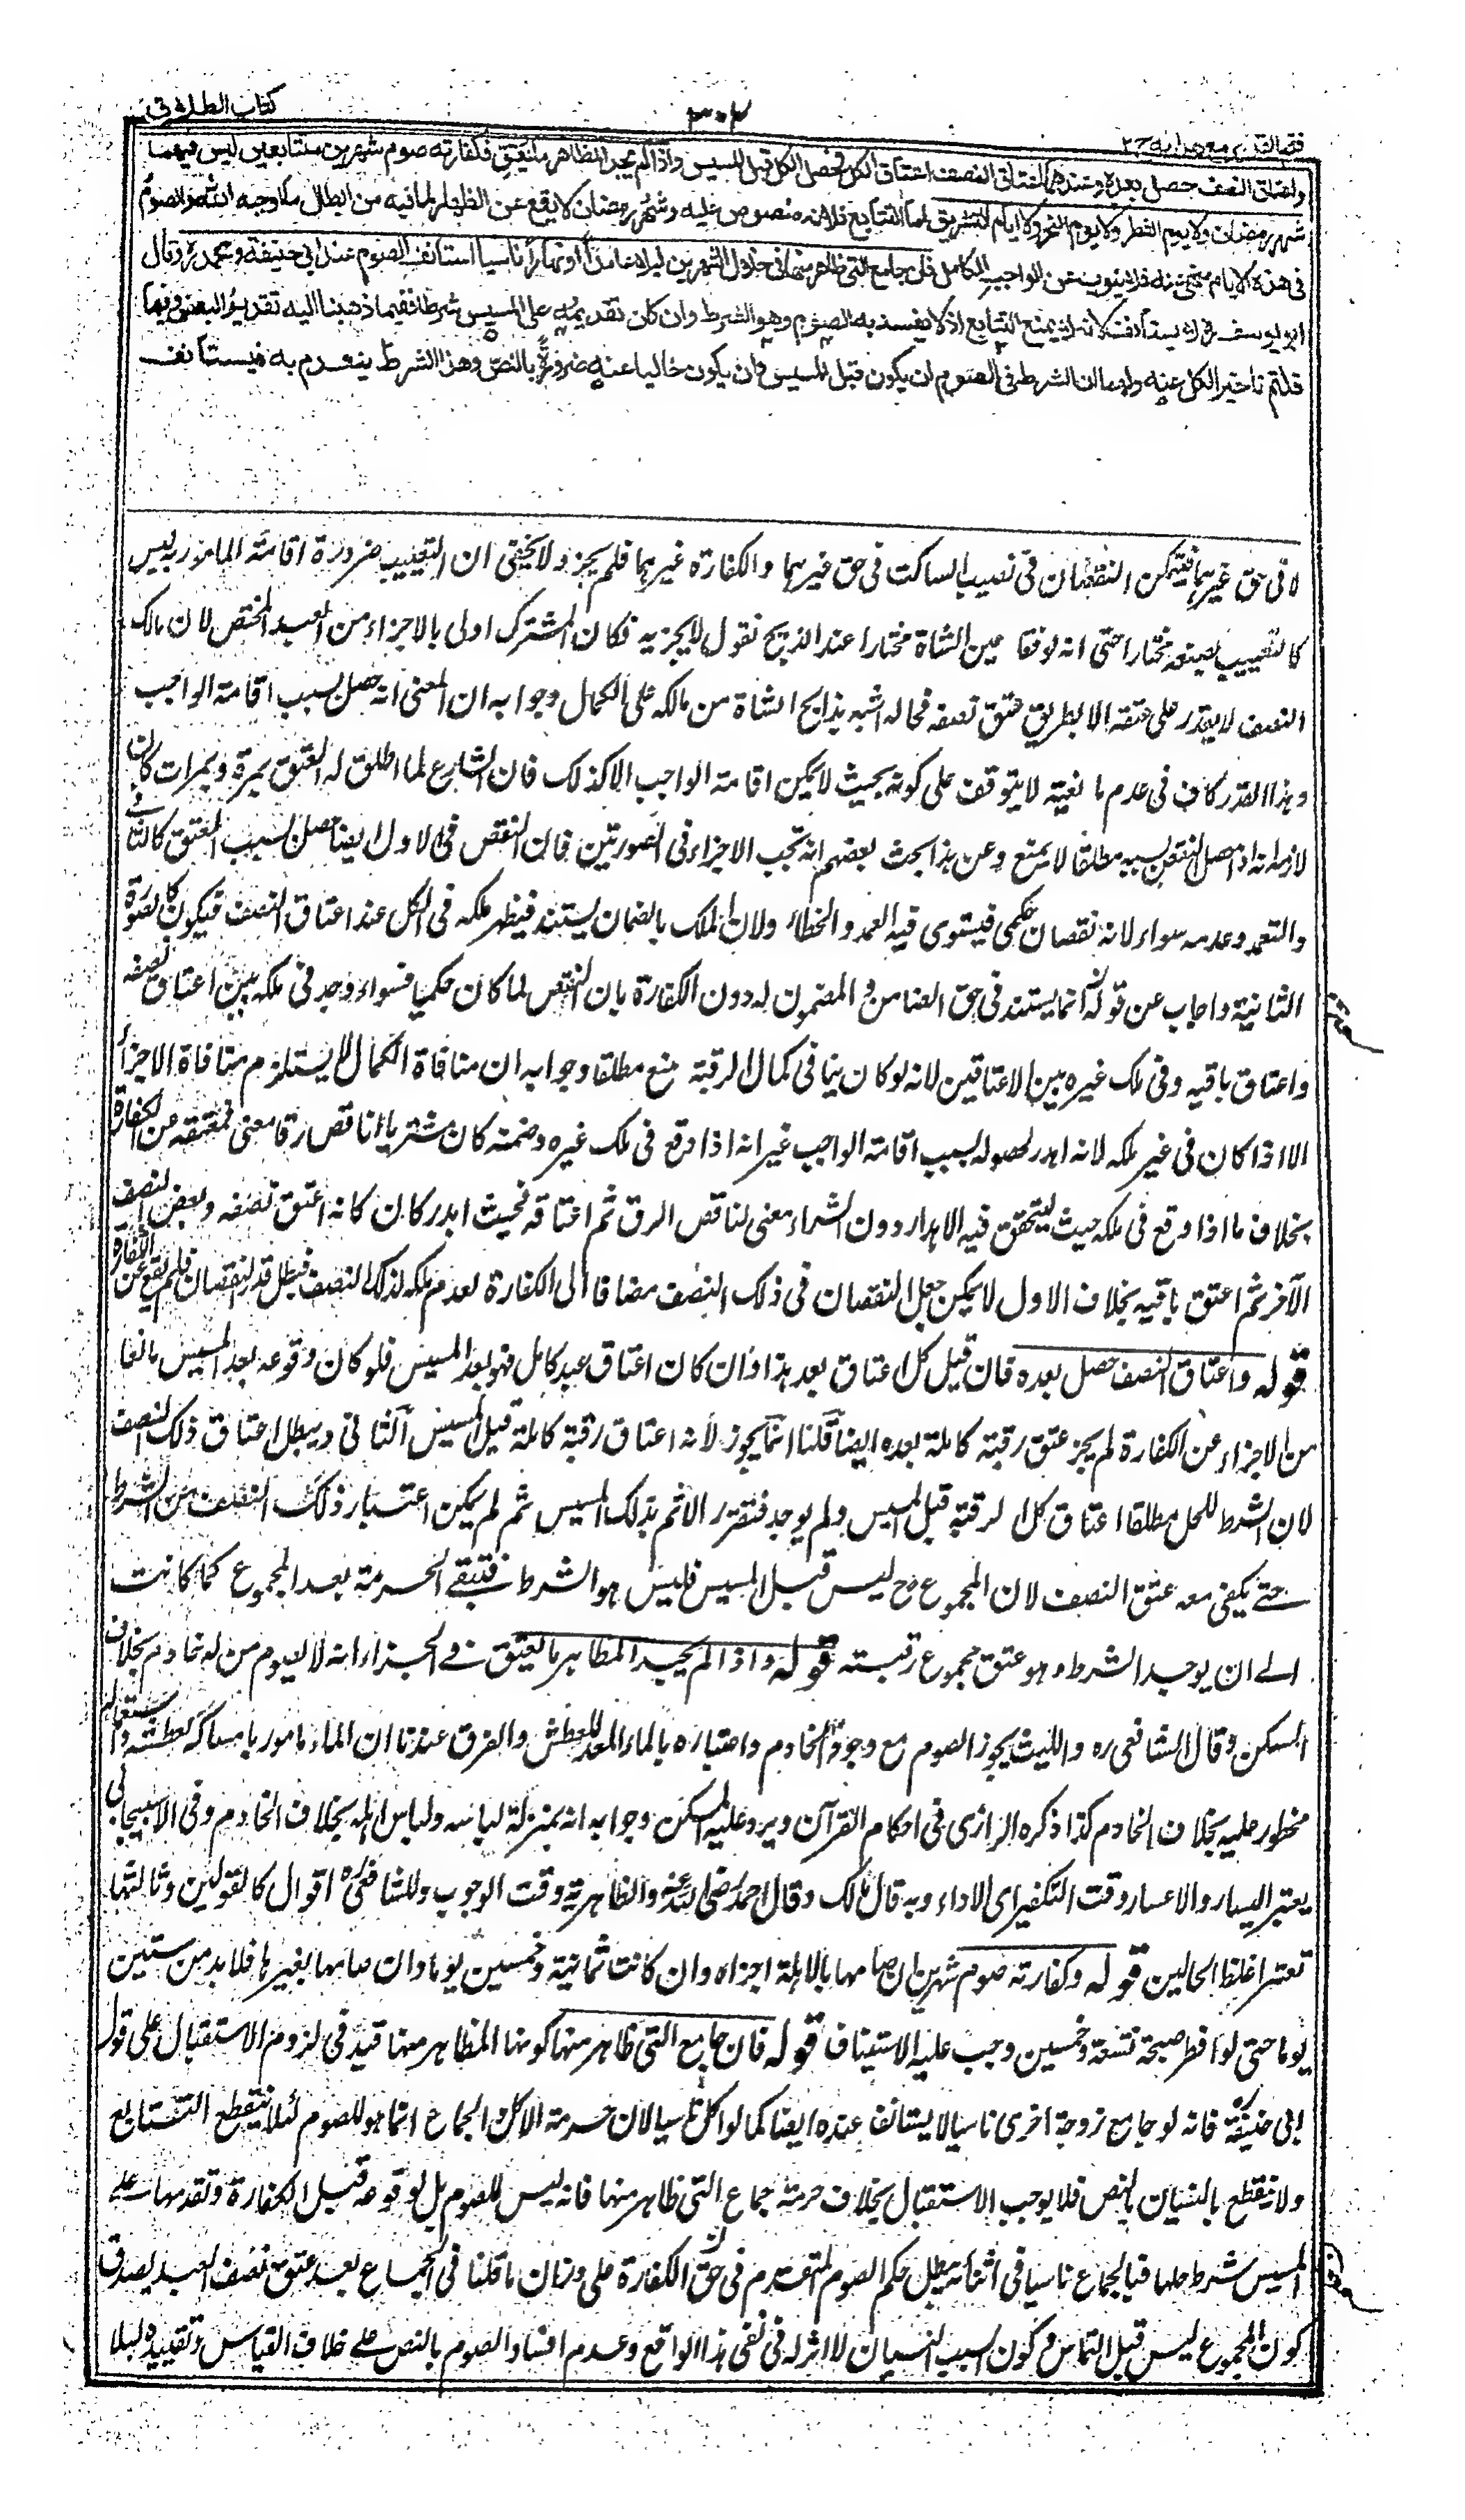 كتاب الطلاق
فتح القدير مع هداية ج٢
واعتاق النصف حصل بعده وعندهما اعتاق النصف اعتاق الكل فحصل الكل قبل المسيس واذا لم يجد المظاهر ما يعتق فكفارته صوم شهرين متتابعين ليس فيهما
شهر رمضان ولا يوم الفطر ولا يوم النحر ولا ايام التشريق اما التتابع فلانه منصوص عليه وشهر رمضان لا يقع عن الظهار لما فيه من ابطال ما اوجبه الله والصوم
فى هذه الايام منهى عنه فلا ينوب عن الواجب الكامل فان جامع التى ظاهر منها فى خلال الشهرين ليلا عامدا او نهارا ناسيا استأنف الصوم عند ابى حنيفة ومحمد وقال
ابو يوسف لا يستأنف لانه لا يمنع التتابع اذ لا يفسد به الصوم وهو الشرط وان كان تقديمه على المسيس شرطا ففيما ذهبنا اليه تقديم البعض وفيما
قلتم تاخير الكل عنه ولهما ان الشرط فى الصوم ان يكون قبل المسيس وان يكون خاليا عنه ضرورة بالنص وهذا الشرط ينعدم به فيستأنف
لا فى حق غيرهما فيتمكن النقصان فى نصيب الساكت فى حق غيرهما والكفارة غيرهما فلم يجز ولا يخفى ان التعييب ضرورة اقامة المامور به ليس
كالتعييب بصنعه مختارا حتى انه لو فقأ عين الشاة مختارا عند الذبح نقول لا يجزيه فكان المشترك اولى بالاجزاء من العبد المختص لان مالك
النصف لا يقدر على عتقه الا بطريق عتق نصفه فحاله اشبه بذابح الشاة من مالكه على الكمال وجوابه ان المعنى انه حصل بسبب اقامة الواجب
وهذا القدر كاف فى عدم مانعيته لا يتوقف على كونه بحيث لا يمكن اقامة الواجب الا كذلك فان الشارع لما اطلق له العتق بمرة وبمرات كان
لازمه انه اذا حصل النقص بسببه مطلقا لا يمنع وعن هذا بحث بعضهم انه يجب الاجزاء فى الصورتين فان النقص فى الاول ايضا حصل بسبب العتق كالثانى
والتعمد وعدمه سواء لانه نقصان حكمى فيستوى فيه العمد والخطاء ولان الملك بالضمان يستند فيظهر ملكه فى الكل عند اعتاق النصف فيكون كالصورة
الثانية واجاب عن قوله انما يستند فى حق الضامن والمضمون له دون الكفارة بان النقص لما كان حكميا فسواء وجد فى ملكه بين اعتاق نصفه
واعتاق باقيه وفى ملك غيره بين الاعتاقين لانه لو كان ينافى كمال الرقبة منع مطلقا وجوابه ان منافاة الكمال لا يستلزم منافاة الاجزاء
الا اذا كان فى غير ملكه لانه اهدر لحصوله بسبب اقامة الواجب غير انه اذا وقع فى ملك غيره وضمنه كان مشتريا ناقص رقا معنى فمعتقه عن الكفارة
بخلاف ما اذا وقع فى ملكه حيث يتحقق فيه الاهدار دون الشراء معنى لناقص الرق ثم اعتاقه فحيث اهدر كان كانه اعتق نصفه وبعض النصف
الآخر ثم اعتق باقيه بخلاف الاول لا يمكن جعل النقصان فى ذلك النصف مضافا الى الكفارة لعدم ملكه لذلك النصف فبطل قدر النقصان فلم يقع عن الكفارة
قوله واعتاق النصف حصل بعده فان قيل كل اعتاق بعد هذا وان كان اعتاق عبد كامل فهو بعد المسيس فلو كان وقوعه بعد المسيس مانعا
من الاجزاء عن الكفارة لم يجز عتق رقبة كاملة بعده ايضا قلنا انما يجوز لانه اعتاق رقبة كاملة قبل المسيس الثانى ويبطل اعتاق ذلك النصف
لان الشرط للحل مطلقا اعتاق كل الرقبة قبل المسيس ولم يوجد فتقرر الاثم بذلك المسيس ثم لم يمكن اعتبار ذلك النصف من الشرط
حتى يكفى معه عتق النصف لان المجموع ح ليس قبل المسيس فليس هو الشرط فتبقى الحرمة بعد المجموع كما كانت
الى ان يوجد الشرط وهو عتق مجموع رقبته قوله واذا لم يجد المظاهر ما يعتق فى الجزاء انه لا يصوم من له خادم بخلاف
المسكن وقال الشافعى ره والليث يجوز الصوم مع وجود الخادم واعتباره بالماء المعد للعطش والفرق عندنا ان الماء مامور بامساكه لعطشه واستعماله
محظور عليه بخلاف الخادم كذا ذكره الرازى فى احكام القرآن ويرد عليه المسكن وجوابه انه بمنزلة لباسه ولباس اهله بخلاف الخادم وفى الاسبيجابى
يعتبر اليسار والاعسار وقت التكفير اى الاداء وبه قال مالك وقال احمد رضى الله عنه والظاهرية وقت الوجوب وللشافعى ره اقوال كالقولين وثالثها
تعتبر اغلظ الحالين قوله وكفارته صوم شهرين ان صامها بالاهلة اجزاه وان كانت ثمانية وخمسين يوما وان صامها بغيرها فلا بد من ستين
يوما حتى لو افطر صبيحة تسعة وخمسين وجب عليه الاستيناف قوله فان جامع التى ظاهر منها كونها المظاهر منها قيد فى لزوم الاستقبال على قول
ابى حنيفة ره فانه لو جامع زوجة اخرى ناسيا لا يستانف عنده ايضا كما لو اكل ناسيا لان حرمة الاكل والجماع انما هو للصوم لئلا ينقطع التتابع
ولا ينقطع بالنسيان بالنص فلا يوجب الاستقبال بخلاف حرمة جماع التى ظاهر منها فانه ليس للصوم بل لوقوعه قبل الكفارة وتقدمها على
المسيس شرط حلها فبالجماع ناسيا فى اثنائه يبطل حكم الصوم المتقدم فى حق الكفارة على وزان ما قلنا فى الجماع بعد عتق نصف العبد يصدق
كون المجموع ليس قبل التماس وكون السبب النسيان لا اثر له فى نفى هذا الواقع وعدم افساد الصوم بالنص على خلاف القياس وتقييده ليلا